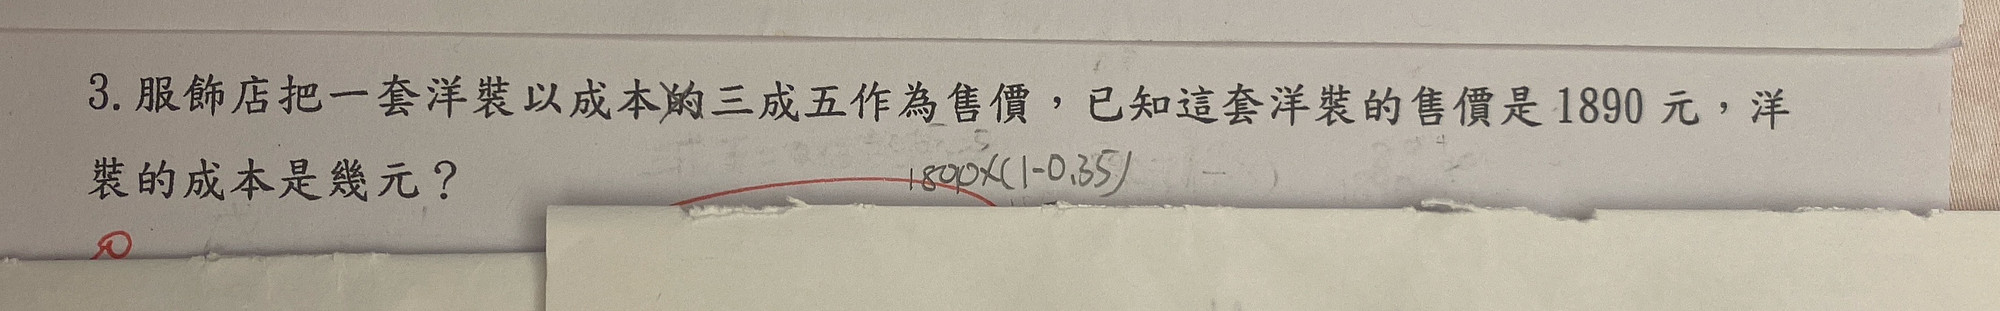 3. 服飾店把一套洋裝以成本的三成五作為售價，已知這套洋裝的售價是 1890 元，洋
裝的成本是幾元？
1890×(1-0.35)